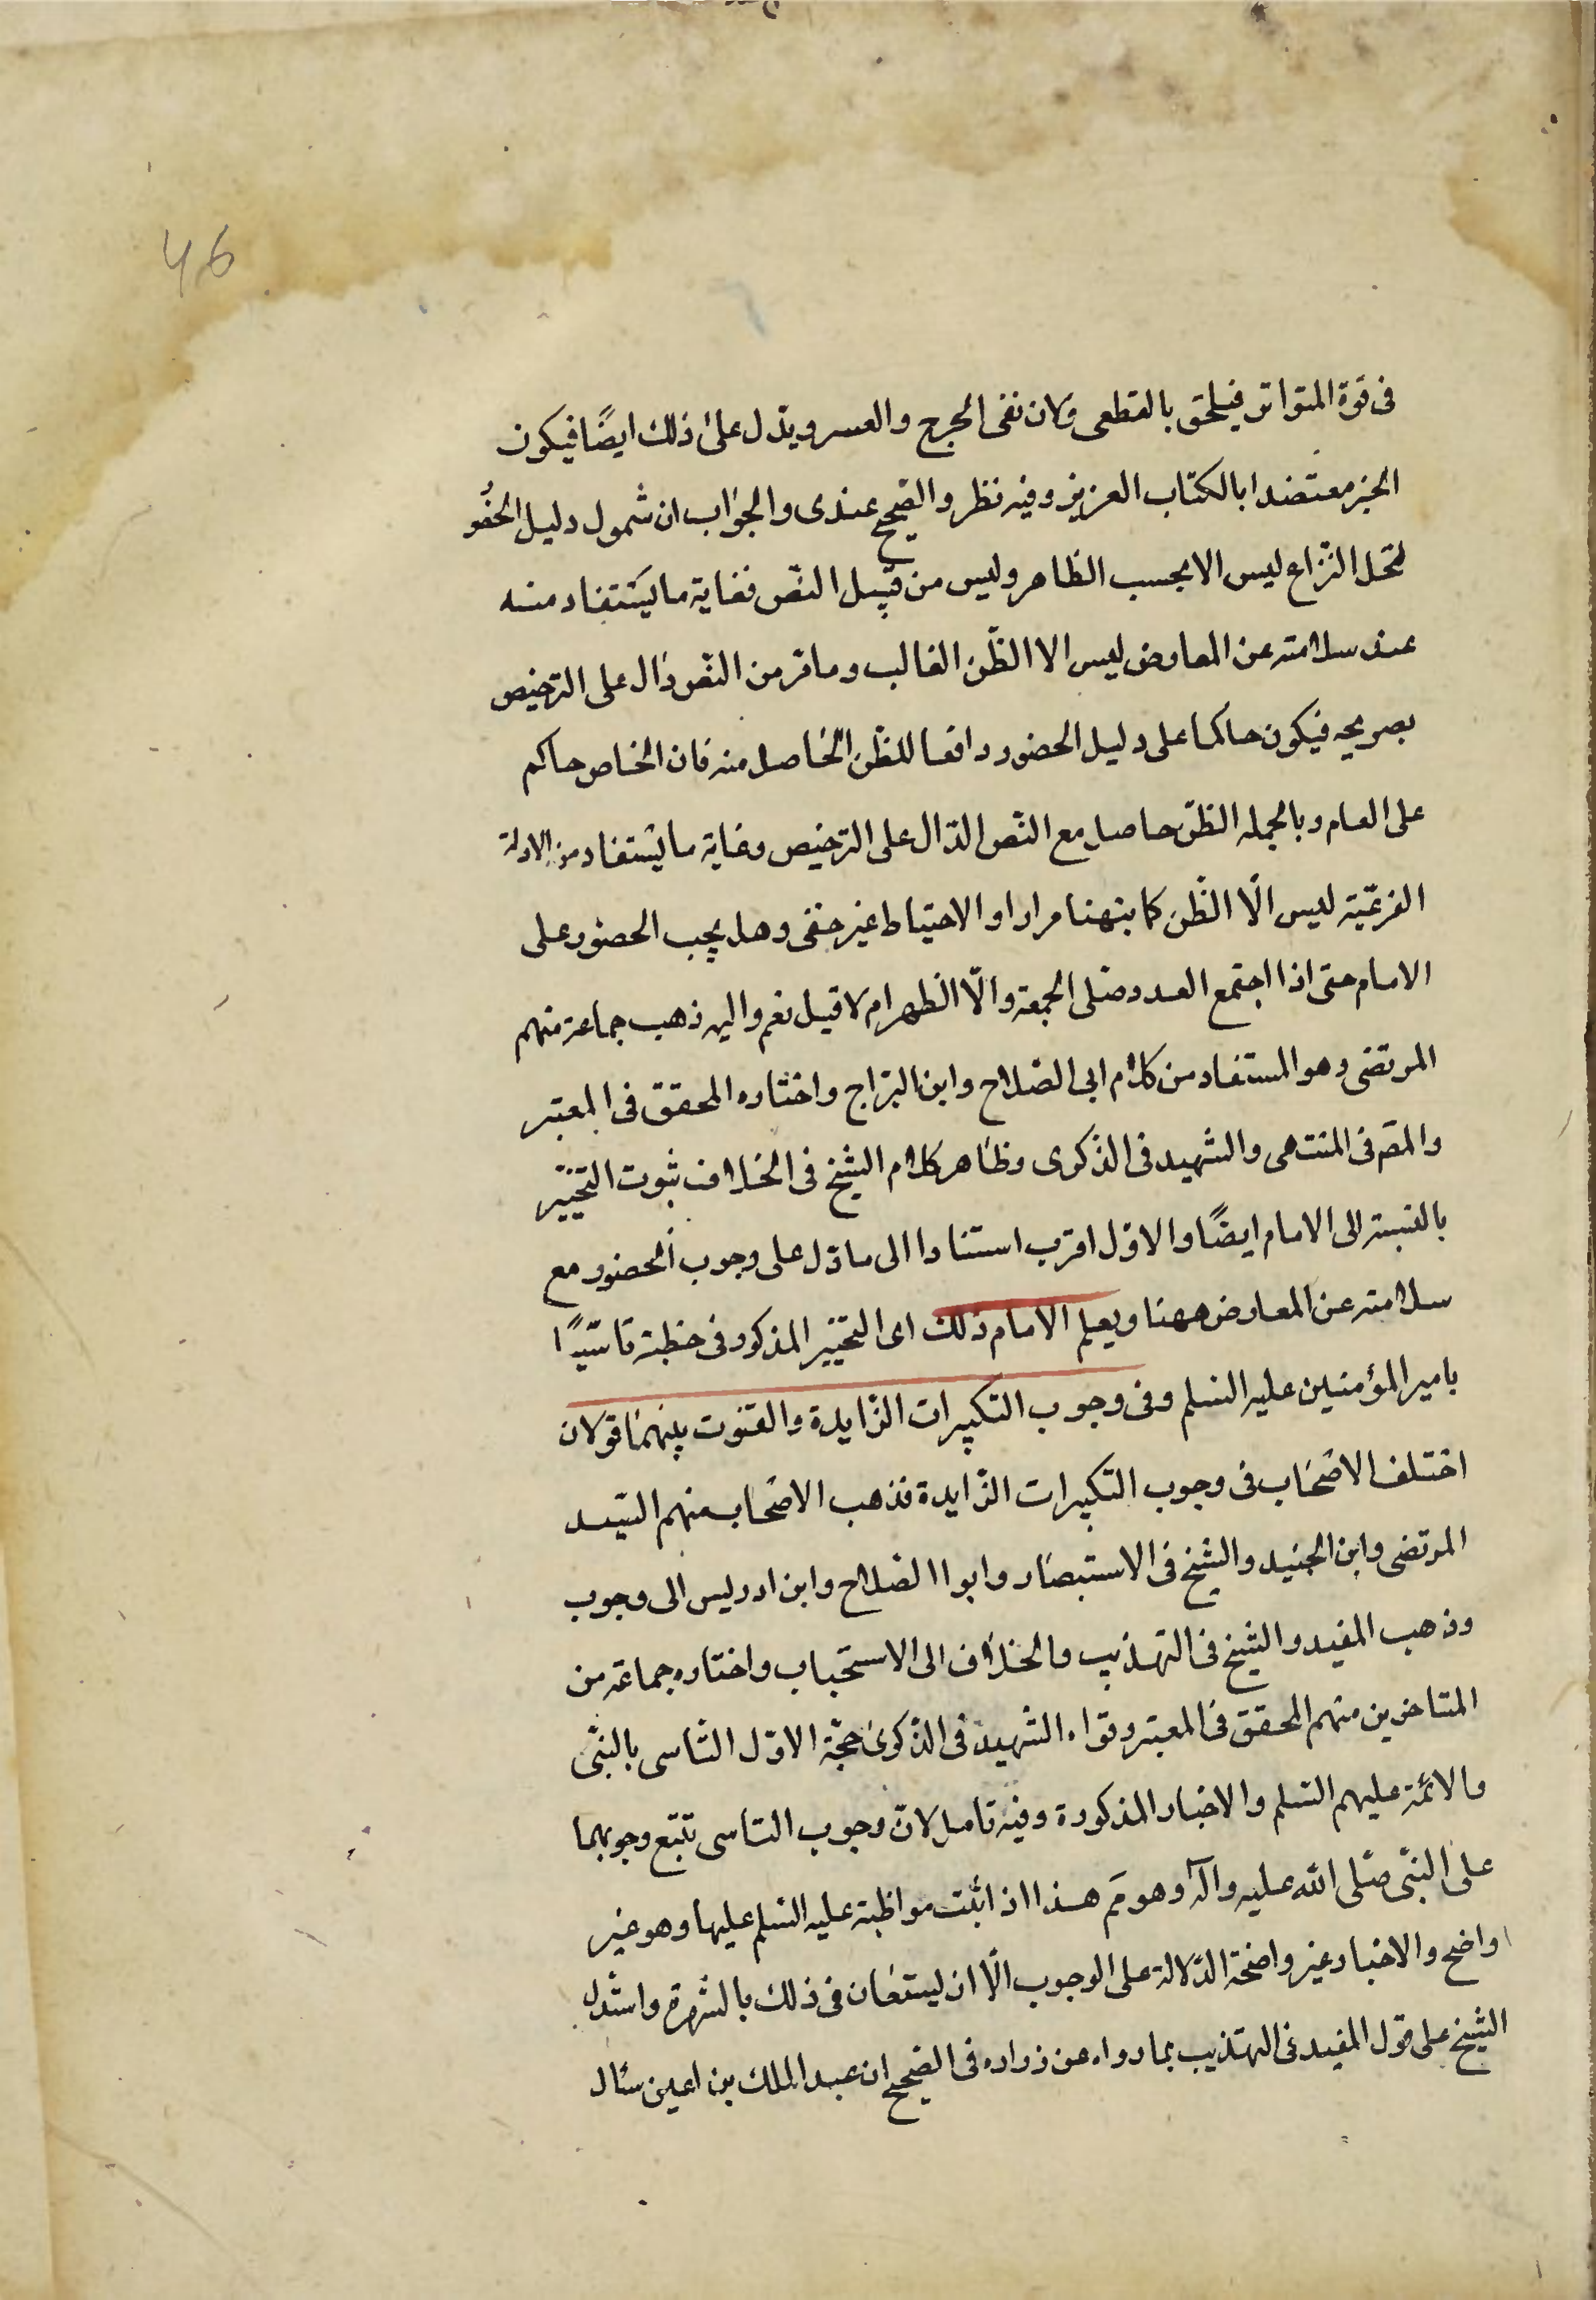 46
فى قوة المتواتر فيلحق بالقطعى ولان نفى الحرج والعسر ويدل على ذلك ايضًا فيكون
الخبر معتضدا بالكتاب العزيز وفيه نظر والصحيح عندى والجواب ان شمول دليل الحضو
لمحل النزاع ليس الا بحسب الظاهر وليس من قبيل النص فغاية ما يستفاد منه
عند سلامته عن المعارض ليس الا الظن الغالب وما مر من النص دال على الترخيص
بصريحه فيكون حاكما على دليل الحضور دافعا للظن الحاصل منه فان الخاص حاكم
على العام وبالجمله الظن حاصل مع النص الدال على الترخيص وغاية ما يستفاد من الادلة
ليس الّا الظن كما نبهنا مرارا و الاحتياط غير خفى وهل يجب الحضور على
الامام حتى اذا اجتمع العدد صلى الجمعة والّا الظهر ام لا قيل نعم واليه ذهب جماعة منهم
المرتضى وهو المستفاد من كلام ابى الصلاح وابن البراج واختاره المحقق فى المعتبر
والمص فى المنتهى والشهيد فى الذكرى وظاهر كلام الشيخ فى الخلاف ثبوت التخيير
بالنسبة الى الامام ايضًا والاول اقرب استنادا الى ما دل على وجوب الحضور مع
سلامته عن المعارض ههنا ويعلم الامام ذلك اى التخيير المذكور فى خطبة تاسّيًا
بامير المؤمنين عليه السلم وفى وجوب التكبيرات الزايدة والقنوت بينهما قولان
اختلف الاصحاب فى وجوب التكبيرات الزايدة فذهب الاصحاب منهم السيد
المرتضى وابن الجنيد والشيخ فى الاستبصار وابوا الصلاح وابن ادريس الى وجوب
وذهب المفيد والشيخ فى التهذيب والخلاف الى الاستحباب واختاره جماعة من
المتاخرين منهم المحقق فى المعتبر وقواه الشهيد فى الذكرى حجة الاول التاسى بالنبى
والائمة عليهم السلم والاخبار المذكورة وفيه تامل لان وجوب التاسى تتبع وجوبهما
على النبى صلى الله عليه وآله وهو مَم هذا اذا ثبت مواظبة عليه السلم عليها وهو غير
واضح والاخبار غير واضحة الدلالة على الوجوب الّا ان يستعان فى ذلك بالشهرة واستدل
الشيخ على قول المفيد فى التهذيب بما رواه عن زراره فى الصحيح ان عبد الملك بن اعين سئال